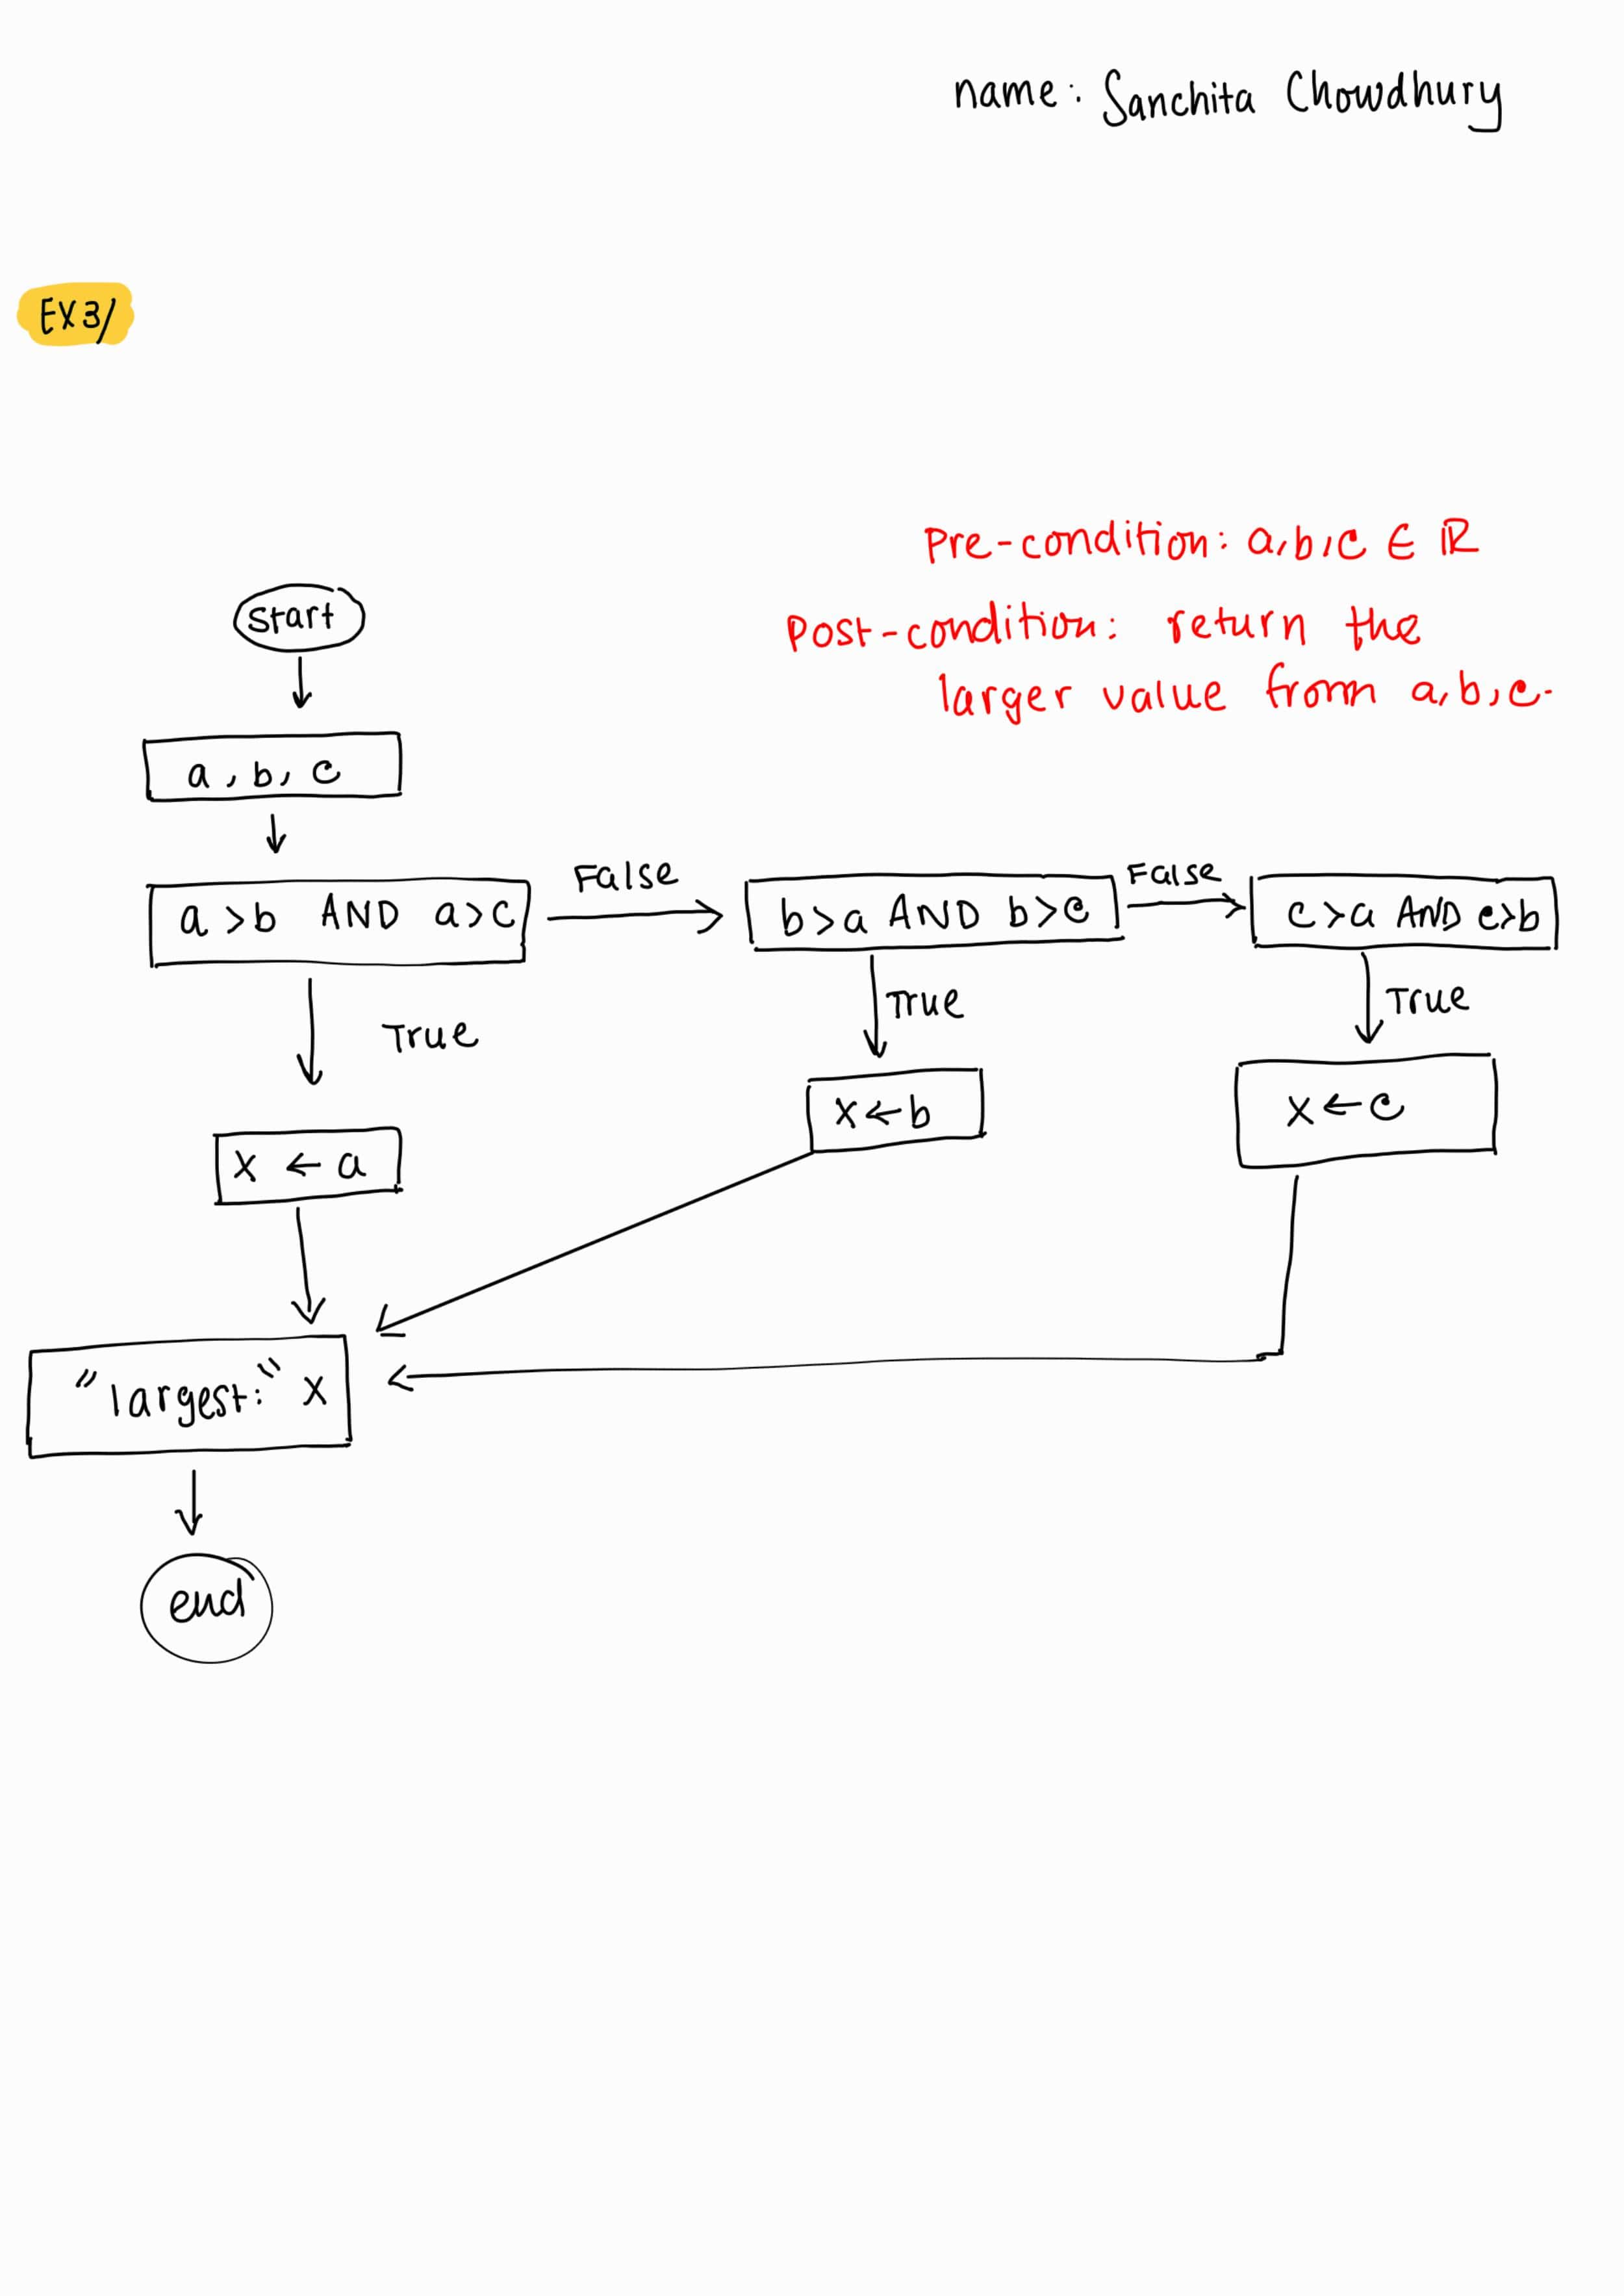 name: Sanchita Chowdhury
EX3/
Pre-condition: a,b,c ∈ ℝ
Post-condition: return the
larger value from a,b,c.
start
a, b, c
a > b AND a > c
False
b > a AND b > c
False
c > a AND c > b
True
True
True
x ← a
x ← b
x ← c
"largest:" x
end